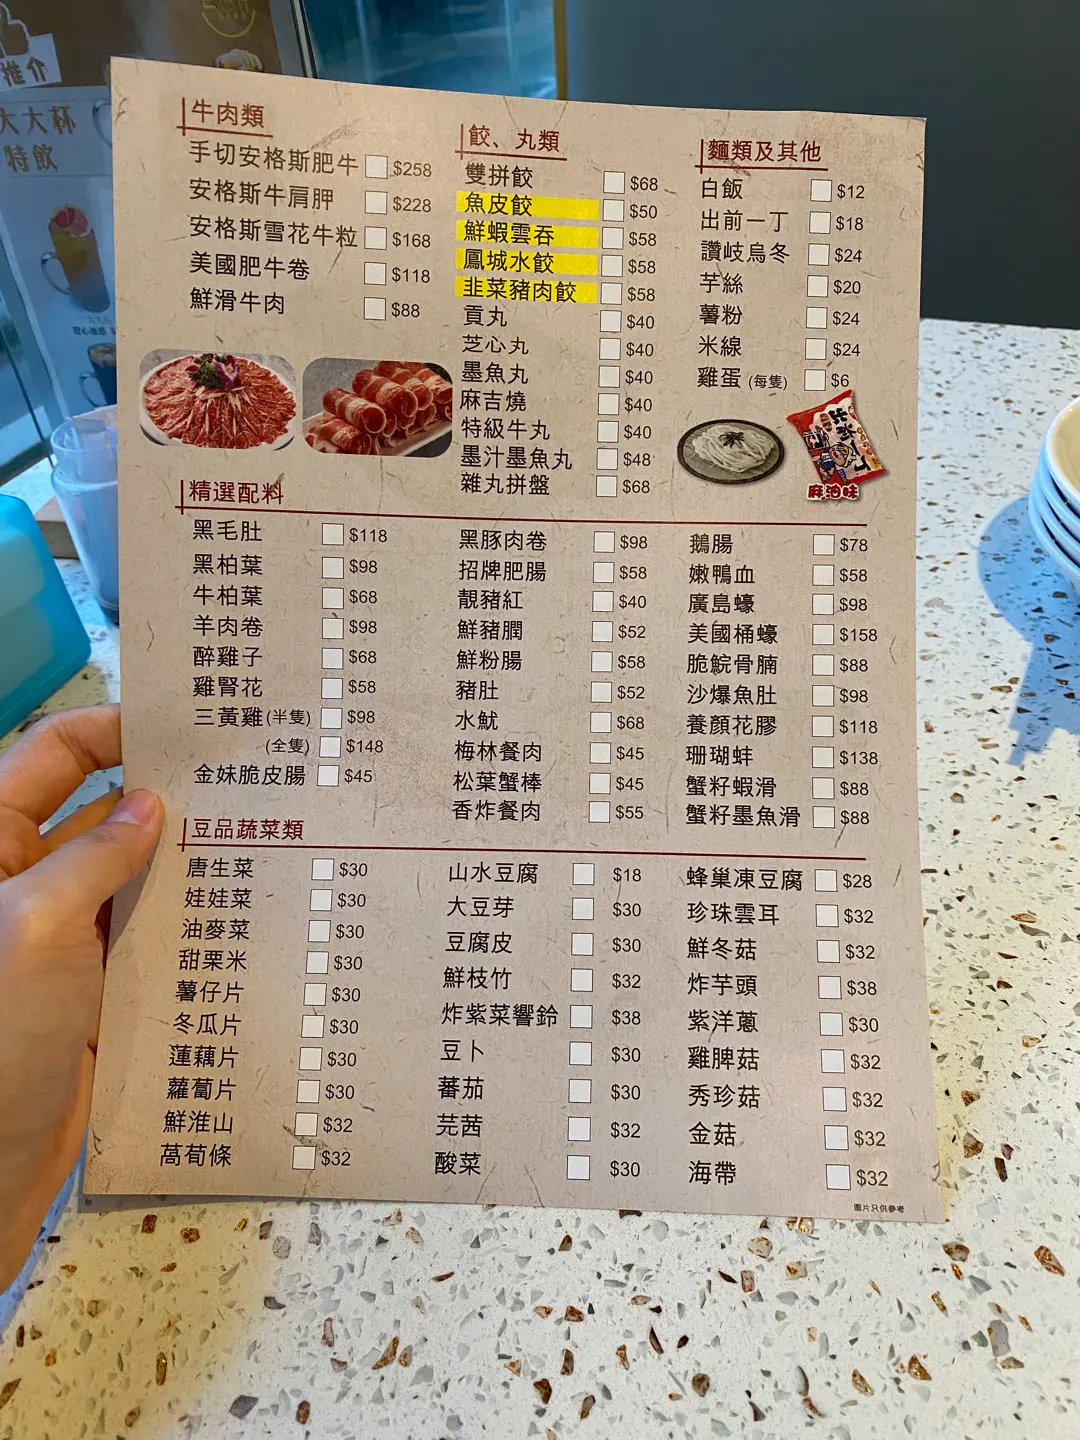 推介
大大杯
特飲
牛肉類
手切安格斯肥牛 $258
安格斯牛肩胛 $228
安格斯雪花牛粒 $168
美國肥牛卷 $118
鮮滑牛肉 $88
餃、丸類
雙拼餃 $68
魚皮餃 $50
鮮蝦雲吞 $58
鳳城水餃 $58
韭菜豬肉餃 $58
貢丸 $40
芝心丸 $40
墨魚丸 $40
麻吉燒 $40
特級牛丸 $40
墨汁墨魚丸 $48
雜丸拼盤 $68
麵類及其他
白飯 $12
出前一丁 $18
讚岐烏冬 $24
芋絲 $20
薯粉 $24
米線 $24
雞蛋 (每隻) $6
出前一丁
麻油味
精選配料
黑毛肚 $118
黑柏葉 $98
牛柏葉 $68
羊肉卷 $98
醉雞子 $68
雞腎花 $58
三黃雞 (半隻) $98
(全隻) $148
金妹脆皮腸 $45
黑豚肉卷 $98
招牌肥腸 $58
靚豬紅 $40
鮮豬膶 $52
鮮粉腸 $58
豬肚 $52
水魷 $68
梅林餐肉 $45
松葉蟹棒 $45
香炸餐肉 $55
鵝腸 $78
嫩鴨血 $58
廣島蠔 $98
美國桶蠔 $158
脆鯇骨腩 $88
沙爆魚肚 $98
養顏花膠 $118
珊瑚蚌 $138
蟹籽蝦滑 $88
蟹籽墨魚滑 $88
豆品蔬菜類
唐生菜 $30
娃娃菜 $30
油麥菜 $30
甜栗米 $30
薯仔片 $30
冬瓜片 $30
蓮藕片 $30
蘿蔔片 $30
鮮淮山 $32
萵荀條 $32
山水豆腐 $18
大豆芽 $30
豆腐皮 $30
鮮枝竹 $32
炸紫菜響鈴 $38
豆卜 $30
蕃茄 $30
芫茜 $32
酸菜 $30
蜂巢凍豆腐 $28
珍珠雲耳 $32
鮮冬菇 $32
炸芋頭 $38
紫洋蔥 $30
雞脾菇 $32
秀珍菇 $32
金菇 $32
海帶 $32
圖片只供參考